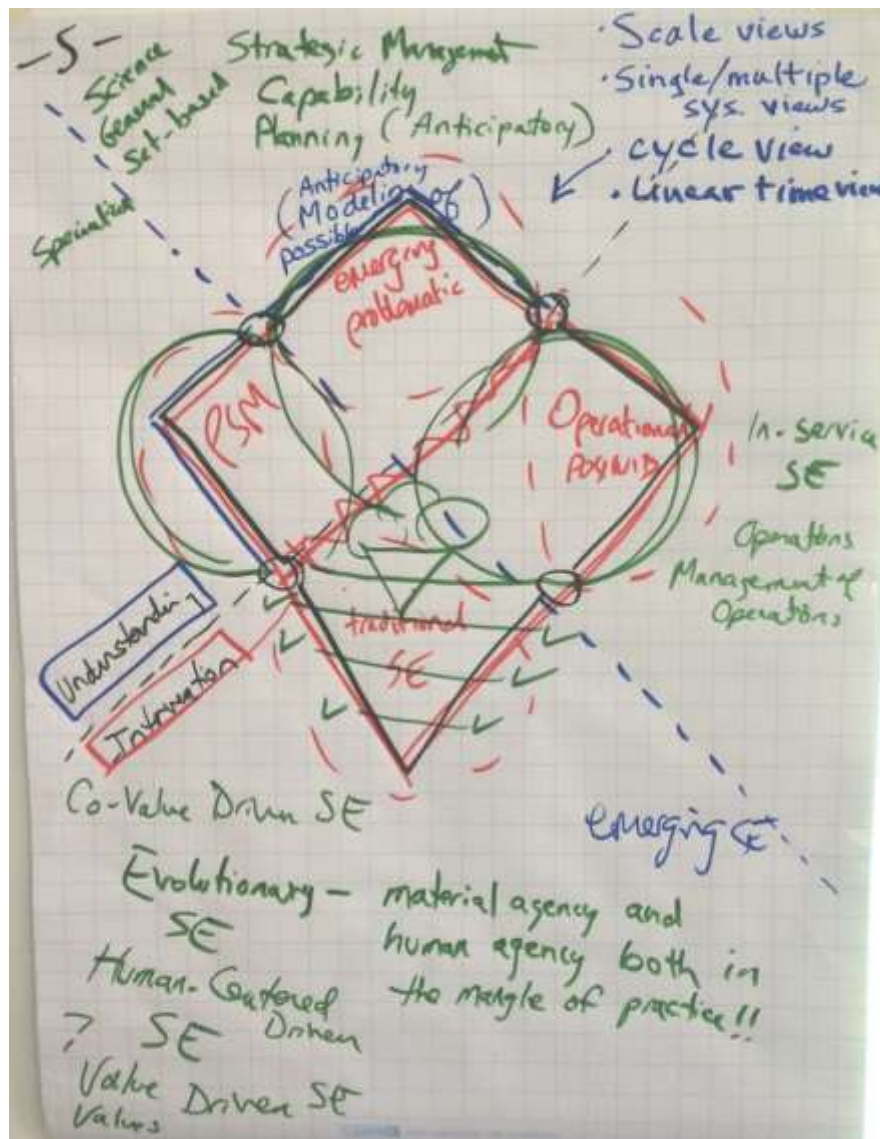 -S-
Science
General
Set-based
Specialist
Strategic Management
Capability
Planning (Anticipatory)
· Scale views
· Single/multiple
sys. views
cycle view
· Linear time view
(Anticipatory
Modeling of)
possible
emerging
problematic
PSM
Operational
In-service
SE
Operations
Management of
Operations
traditional
SE
Understanding
Intervention
Co-Value Driven SE
emerging SE
Evolutionary — material agency and
SE human agency both in
Human-Centered the mangle of practice!!
? SE Driven
Value Driven SE
Values